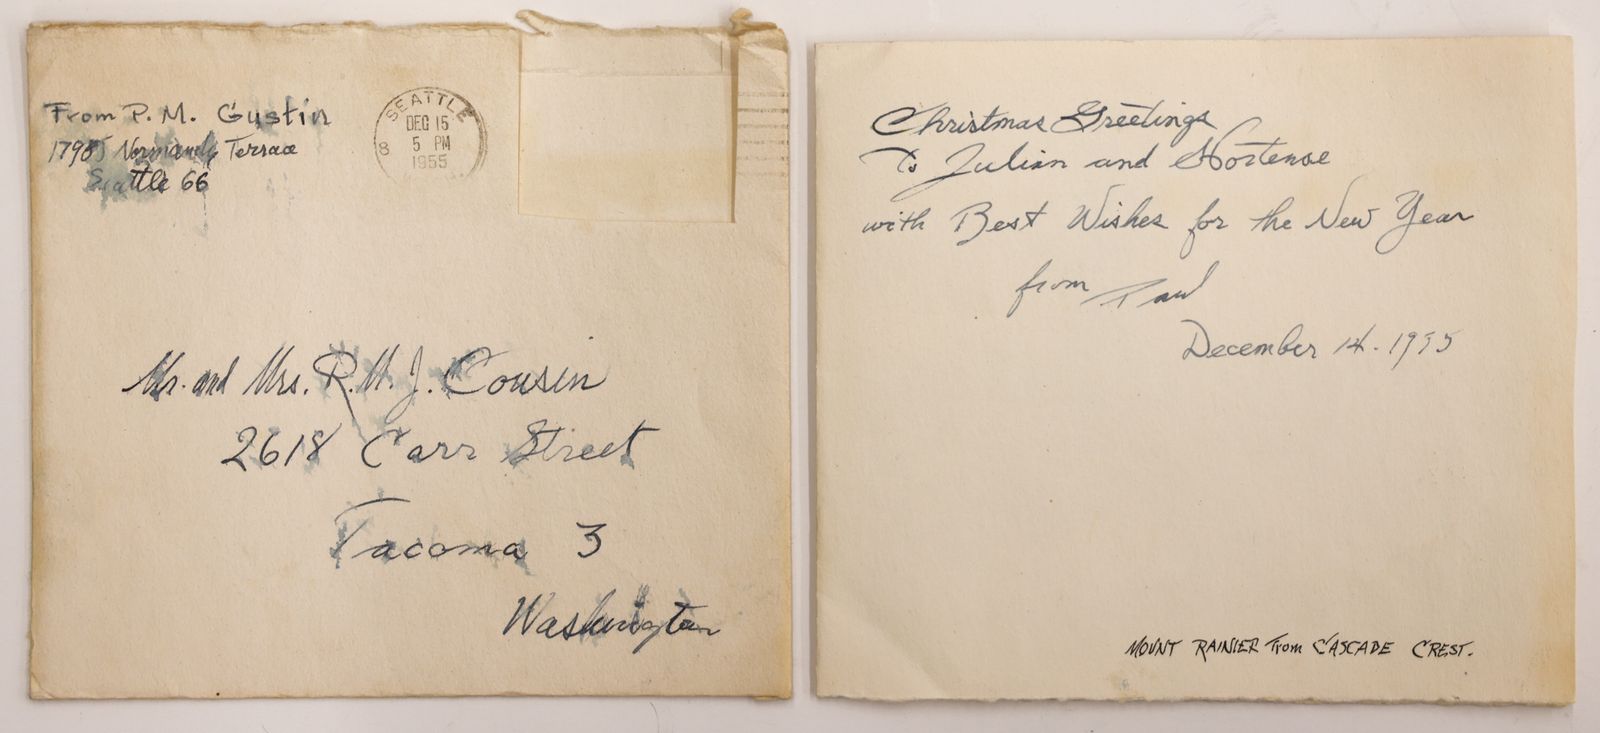 From P. M. Gustin
17905 Normandy Terrace
Seattle 66
SEATTLE
DEC 15
5 PM
1955
8
Mr. and Mrs. R. H. J. Cousin
2618 Carr Street
Tacoma 3
Washington
Christmas Greetings
To Julian and Hortense
with Best Wishes for the New Year
from Paul
December 14. 1955
MOUNT RAINIER From CASCADE CREST.